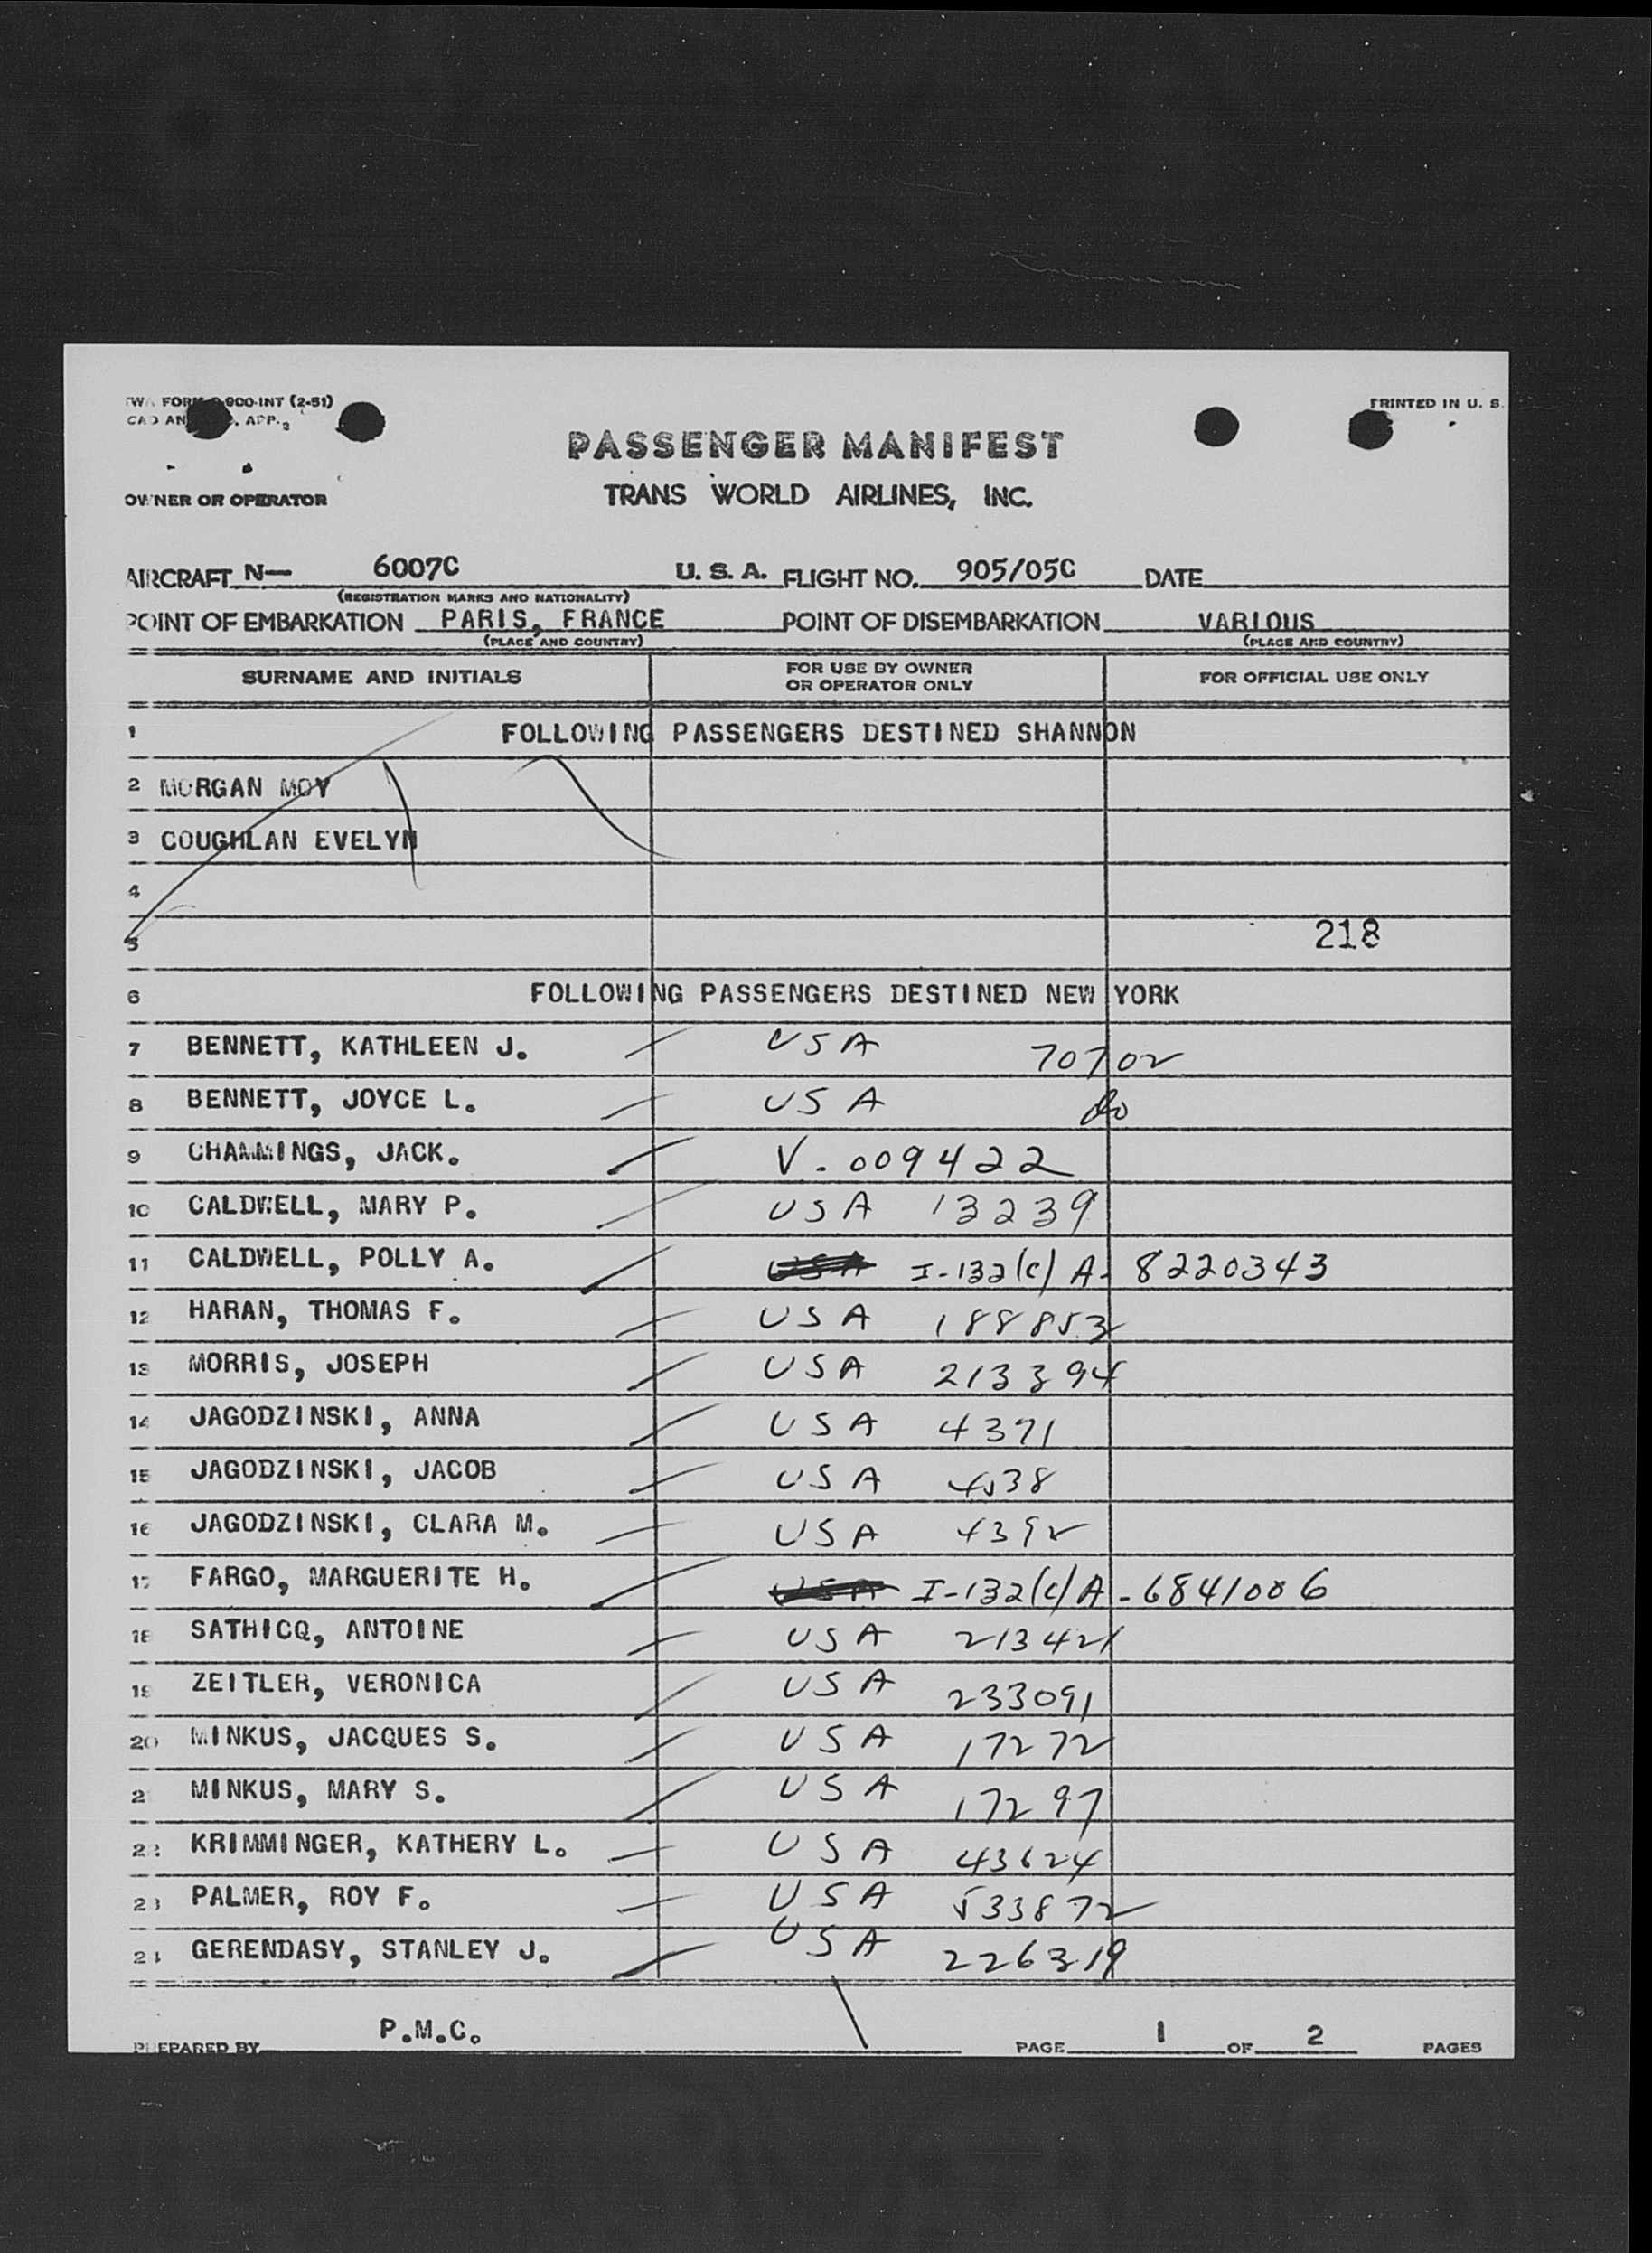 TWA FORM 900-INT (2-51)
CAO AN APP. 2
PRINTED IN U. S.
PASSENGER MANIFEST
OWNER OR OPERATOR TRANS WORLD AIRLINES, INC.
AIRCRAFT N— 6007C U. S. A. FLIGHT NO. 905/05C DATE
(REGISTRATION MARKS AND NATIONALITY)
POINT OF EMBARKATION PARIS, FRANCE POINT OF DISEMBARKATION VARIOUS
(PLACE AND COUNTRY) (PLACE AND COUNTRY)
SURNAME AND INITIALS FOR USE BY OWNER OR OPERATOR ONLY FOR OFFICIAL USE ONLY
1 FOLLOWING PASSENGERS DESTINED SHANNON
2 MORGAN MOY
3 COUGHLAN EVELYN
4
5 218
6 FOLLOWING PASSENGERS DESTINED NEW YORK
7 BENNETT, KATHLEEN J. USA 70702
8 BENNETT, JOYCE L. USA do
9 CHAMMINGS, JACK. V. 009422
10 CALDWELL, MARY P. USA 13239
11 CALDWELL, POLLY A. USA I-132(c) A- 8220343
12 HARAN, THOMAS F. USA 188853
13 MORRIS, JOSEPH USA 213394
14 JAGODZINSKI, ANNA USA 4391
15 JAGODZINSKI, JACOB USA
16 JAGODZINSKI, CLARA M. USA 4392
17 FARGO, MARGUERITE H. USA I-132(c) A-6841006
18 SATHICQ, ANTOINE USA 213421
19 ZEITLER, VERONICA USA 233091
20 MINKUS, JACQUES S. USA 17272
21 MINKUS, MARY S. USA 17297
22 KRIMMINGER, KATHERY L. USA 43624
23 PALMER, ROY F. USA 533872
24 GERENDASY, STANLEY J. USA 226319
PREPARED BY P.M.C. PAGE 1 OF 2 PAGES